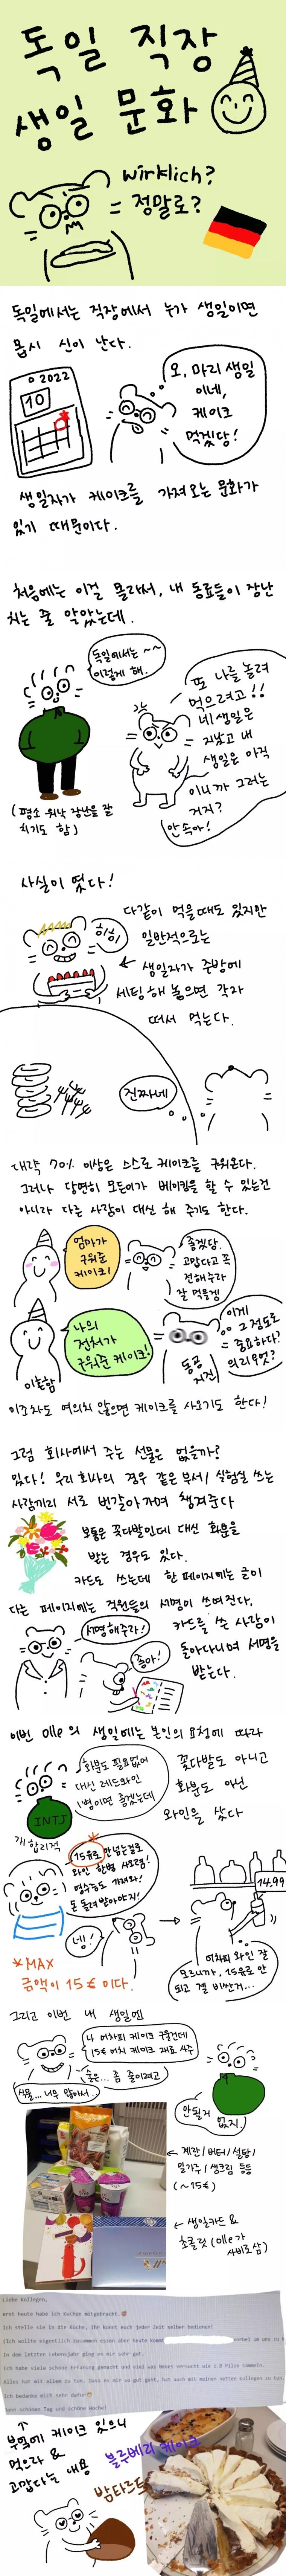 독일 직장
생일 문화
wirklich?
= 정말로?
독일에서는 직장에서 누가 생일이면
몹시 신이 난다.
2022
10
오, 마리 생일
이네,
케이크
먹겠당!
생일자가 케이크를 가져오는 문화가
있기 때문이다.
처음에는 이걸 몰라서, 내 동료들이 장난
치는 줄 알았는데.
독일에서는~~
이렇게 해.
또 나를 놀려
먹으려고!!
네 생일은
지났고 내
생일은 아직
이니까 그러는
거지?
안속아!
(평소 워낙 장난을 잘
치기도 함)
사실이 였다!
히히
다같이 먹을때도 있지만
일반적으로는
생일자가 주방에
세팅해 놓으면 각자
떠서 먹는다.
진짜네
대략 70% 이상은 스스로 케이크를 구워온다.
그러나 당연히 모든이가 베이킹을 할 수 있는건
아니라 다른 사람이 대신 해 주기도 한다.
엄마가
구워준
케이크!
좋겠당.
고맙다고 꼭
전해주라
잘 먹을껭
나의
전처가
구워준 케이크!
이혼함
동공
지진
이게
그정도로
중요하다?
의리우엇?
이조차도 여의치 않으면 케이크를 사오기도 한다!
그럼 회사에서 주는 선물은 없을까?
있다! 우리 회사의 경우 같은 부서/실험실 쓰는
사람끼리 서로 번갈아가며 챙겨준다
보통은 꽃다발인데 대신 화분을
받는 경우도 있다.
카드도 쓰는데 한 페이지에는 글이
다른 페이지에는 직원들의 서명이 쓰여진다.
서명해주라!
좋아!
카드를 쓴 사람이
돌아다니며 서명을
받는다.
이번 olle 의 생일에는 본인의 요청에 따라
화분도 필요없어
대신 레드와인
1병이면 좋겠는데
꽃다발도 아니고
화분도 아닌
와인을 샀다
INTJ
개합리적
15유로 안넘는걸로
와인 한병 사오렴!
영수증도 가져와!
돈 돌려받아야지!
넹!
14.99
어차피 와인 잘
모르니까, 15유로 안
되고 젤 비싼거...
*MAX
금액이 15€ 이다.
그리고 이번 내 생일에
나 어차피 케이크 구울건데
15€ 어치 케이크 재료 사주
식물... 너무 많아서.
좀 줄이려고
안될거
없지.
← 계란/버터/설탕/
밀가루/생크림 등등
(~15€)
← 생일카드 &
초콜릿 (olle가
사비로 삼)
Liebe Kollegen,
erst heute habe ich Kuchen mitgebracht.
Ich stelle sie in die Küche, ihr könnt euch jeder Zeit selber bedienen!
(Ich wollte eigentlich zusammen essen aber heute kommt
In dem letzten Lebensjahr ging es mir sehr gut.
Ich habe viel schöne Erfahrung gemacht und viel was Neues versucht wie z.B Pilze sammeln.
Alles hat mit allem zu tun. Dass es mir so gut geht, hat auch mit meinen netten Kollegen zu tun.
Ich bedanke mich sehr dafür
einen schönen Tag und schöne Woche!
부엌에 케이크 있으니
먹으라 &
고맙다는 내용
블루베리 케이크
밤타르트